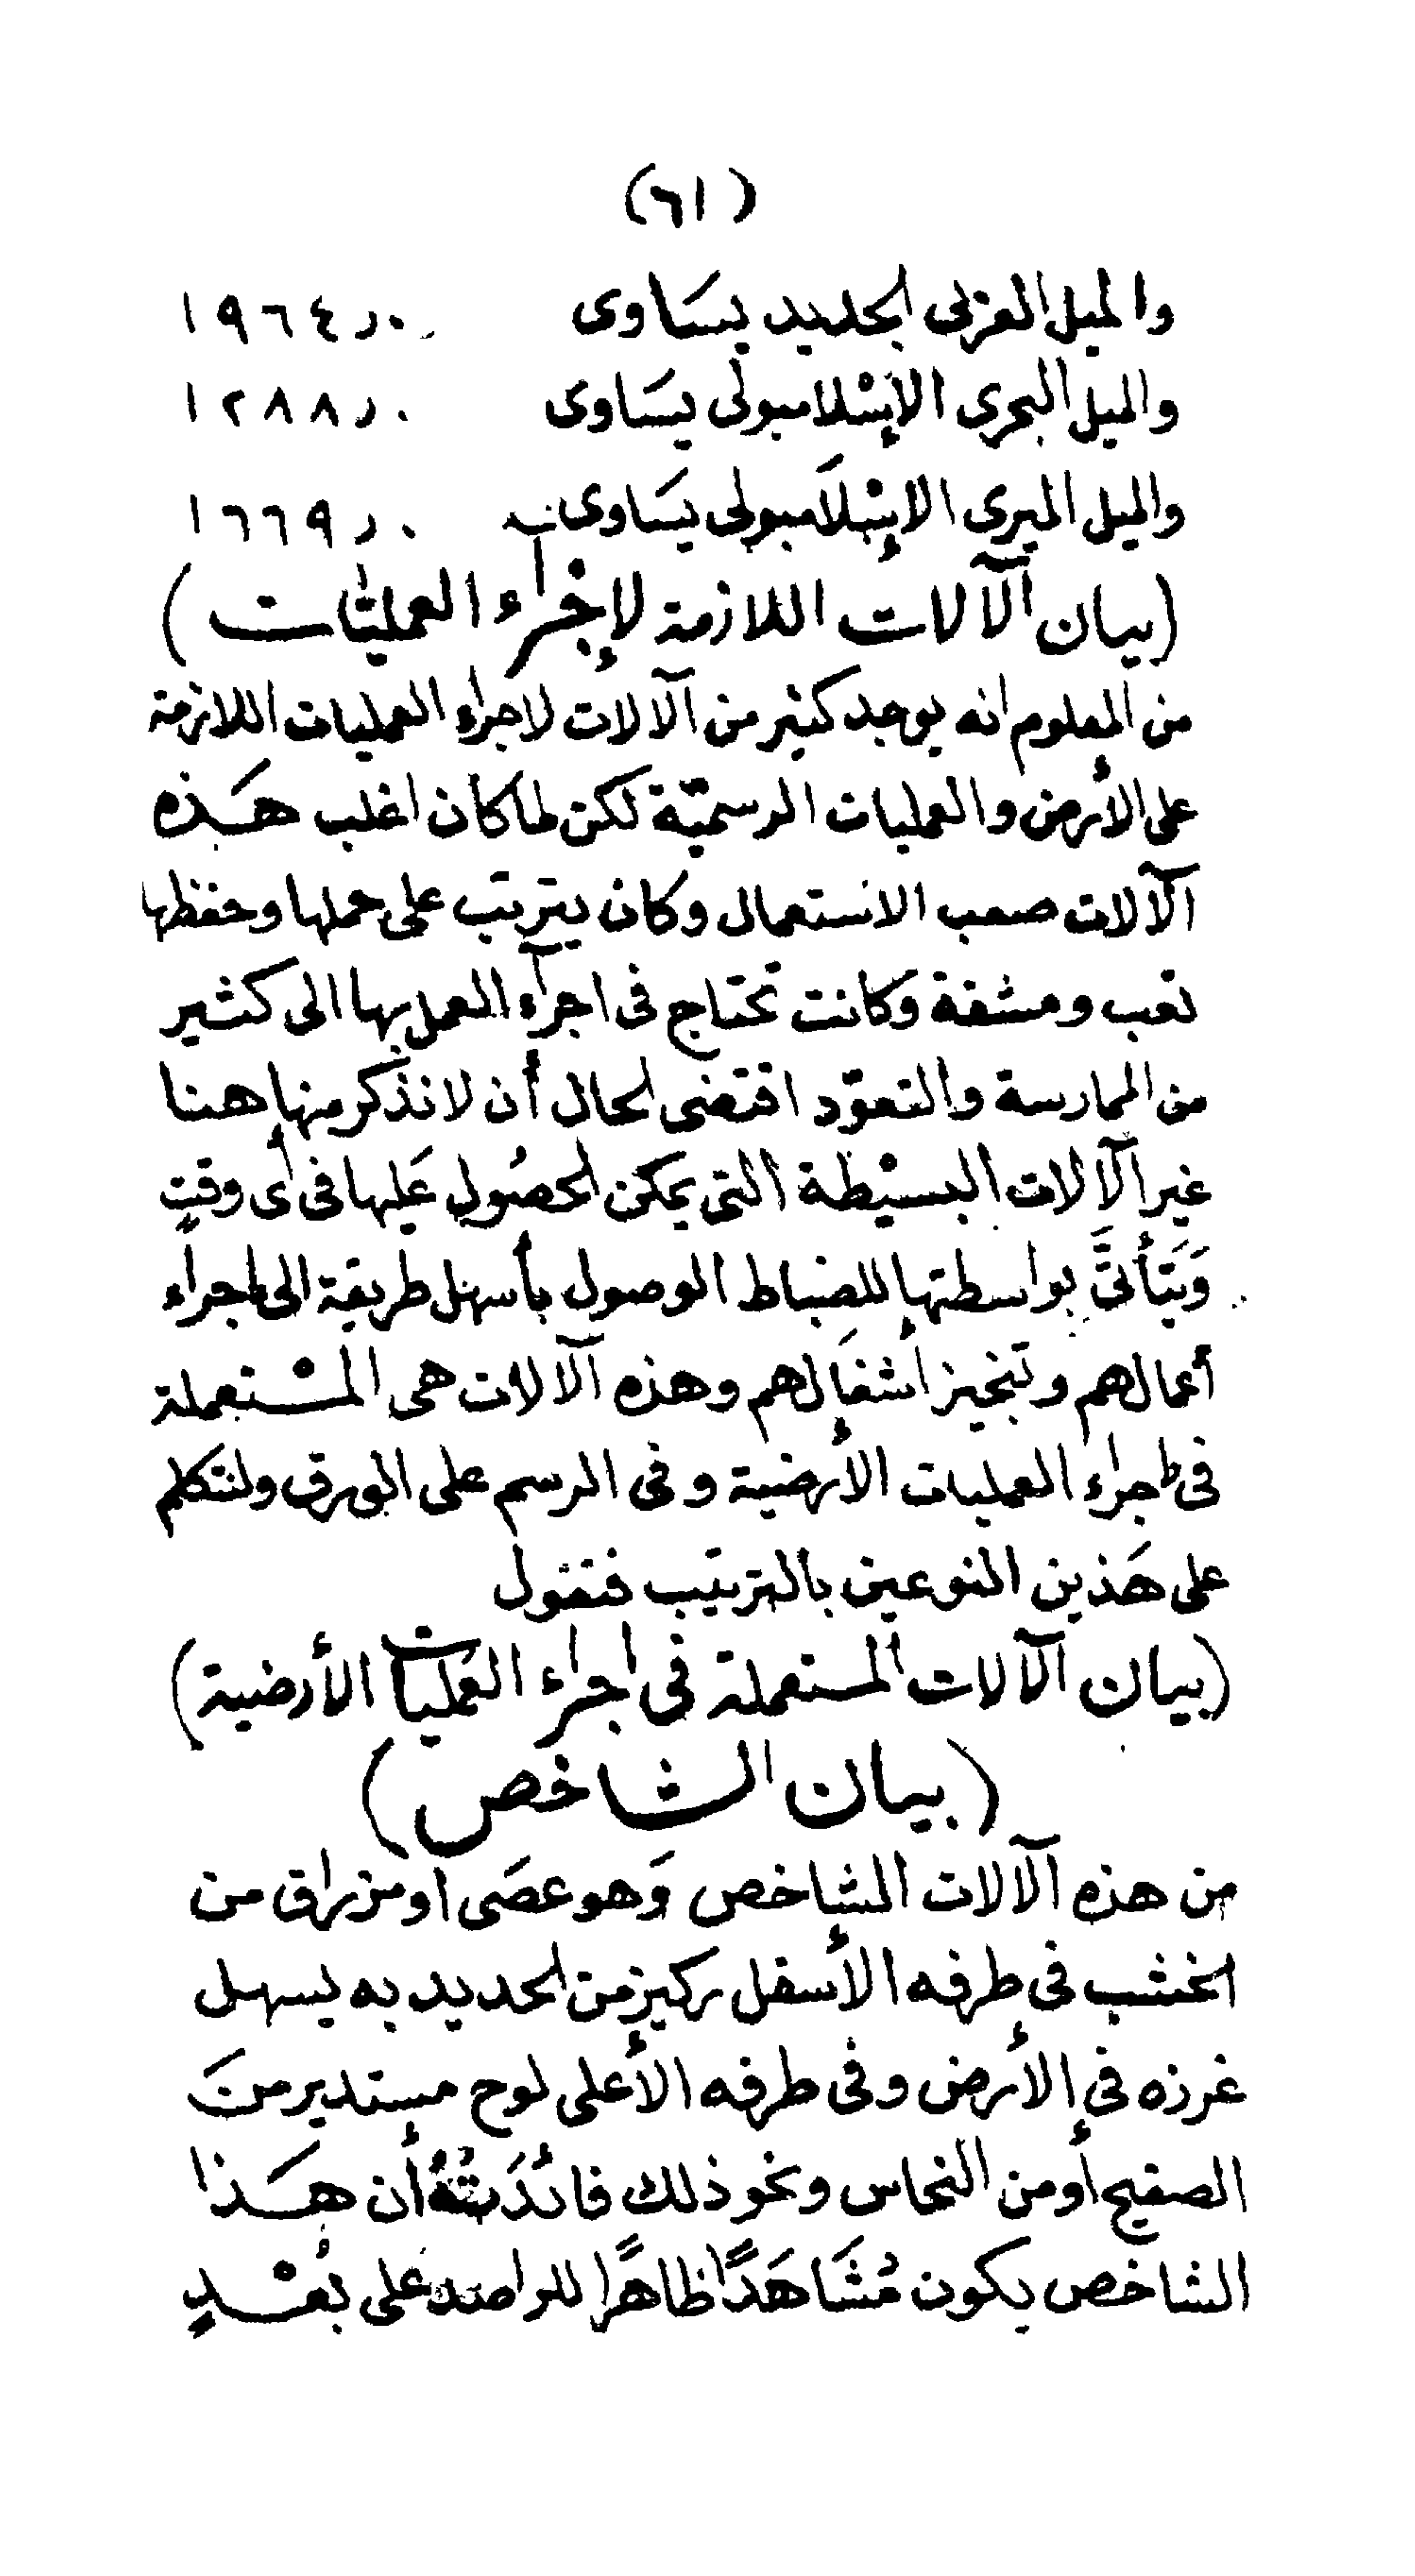 (٦١)
والميل العربى الجديد يسَاوى ١٩٦٤ر٠
والميل البحرى الإسْلامبولى يسَاوى ١٢٨٨ر٠
والميل البرى الإسْلَامبولى يسَاوى ١٦٦٩ر٠
(بيان الآلات اللازمة لإجْرآء العمليَّات)
من المعلوم انه يوجد كثير من الآلات لاجراء العمليات اللازمة
على الأرض والعمليات الرسميّة لكن لما كان اغلب هَذه
الآلات صعب الاستعمال وكان يترتب على حملها وحفظها
تعب ومشقة وكانت تحتاج فى اجرآء العمل بها الى كثير
من الممارسة والتعوّد اقتضى الحال أن لا نذكر منها هنا
غير الآلات البسيْطة التى يمكن الحصُول عَليها فى أى وقتٍ
وَيَتَأتَّى بواسطتها للضباط الوصول بأسهل طريقة الى اجراء
أعمالهم وتنجيز أشغَالهم وهذه الآلات هى المسْتعملة
فى اجراء العمليات الأرضية وفى الرسم على الورق ولنتكلم
على هَذين النوعين بالترتيب فنقول
(بيان الآلات المستعملة فى اجراء العمليات الأرضية)
(بيان الشاخص)
من هذه الآلات الشاخص وَهو عصَى او مزراق من
الخشب فى طرفه الأسفل ركيز من الحديد به يسهل
غرزه فى الأرض وفى طرفه الأعلى لوح مستدير منَ
الصفيح أو من النحاس ونحو ذلك فائدَتُهُ أن هَذا
الشاخص يكون مُشَاهَدًا ظاهرًا للراصد على بُعْدٍ